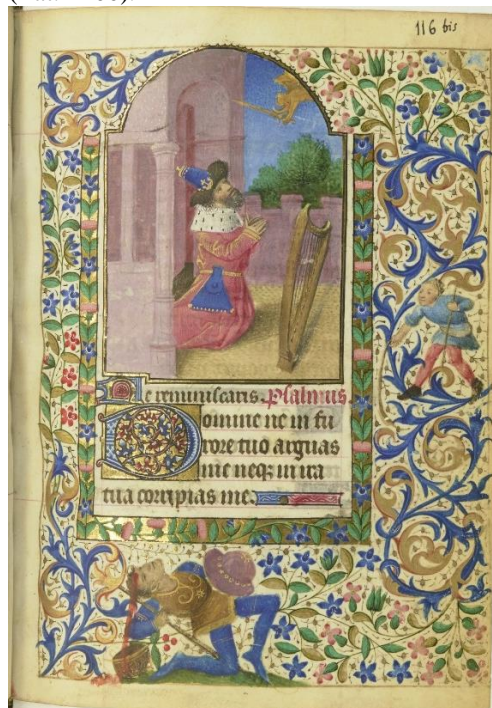 116 bis
Ne reminiscaris. Psalmus
Domine ne in fu
rore tuo arguas
me neqꝫ in ira
tua corripias me.